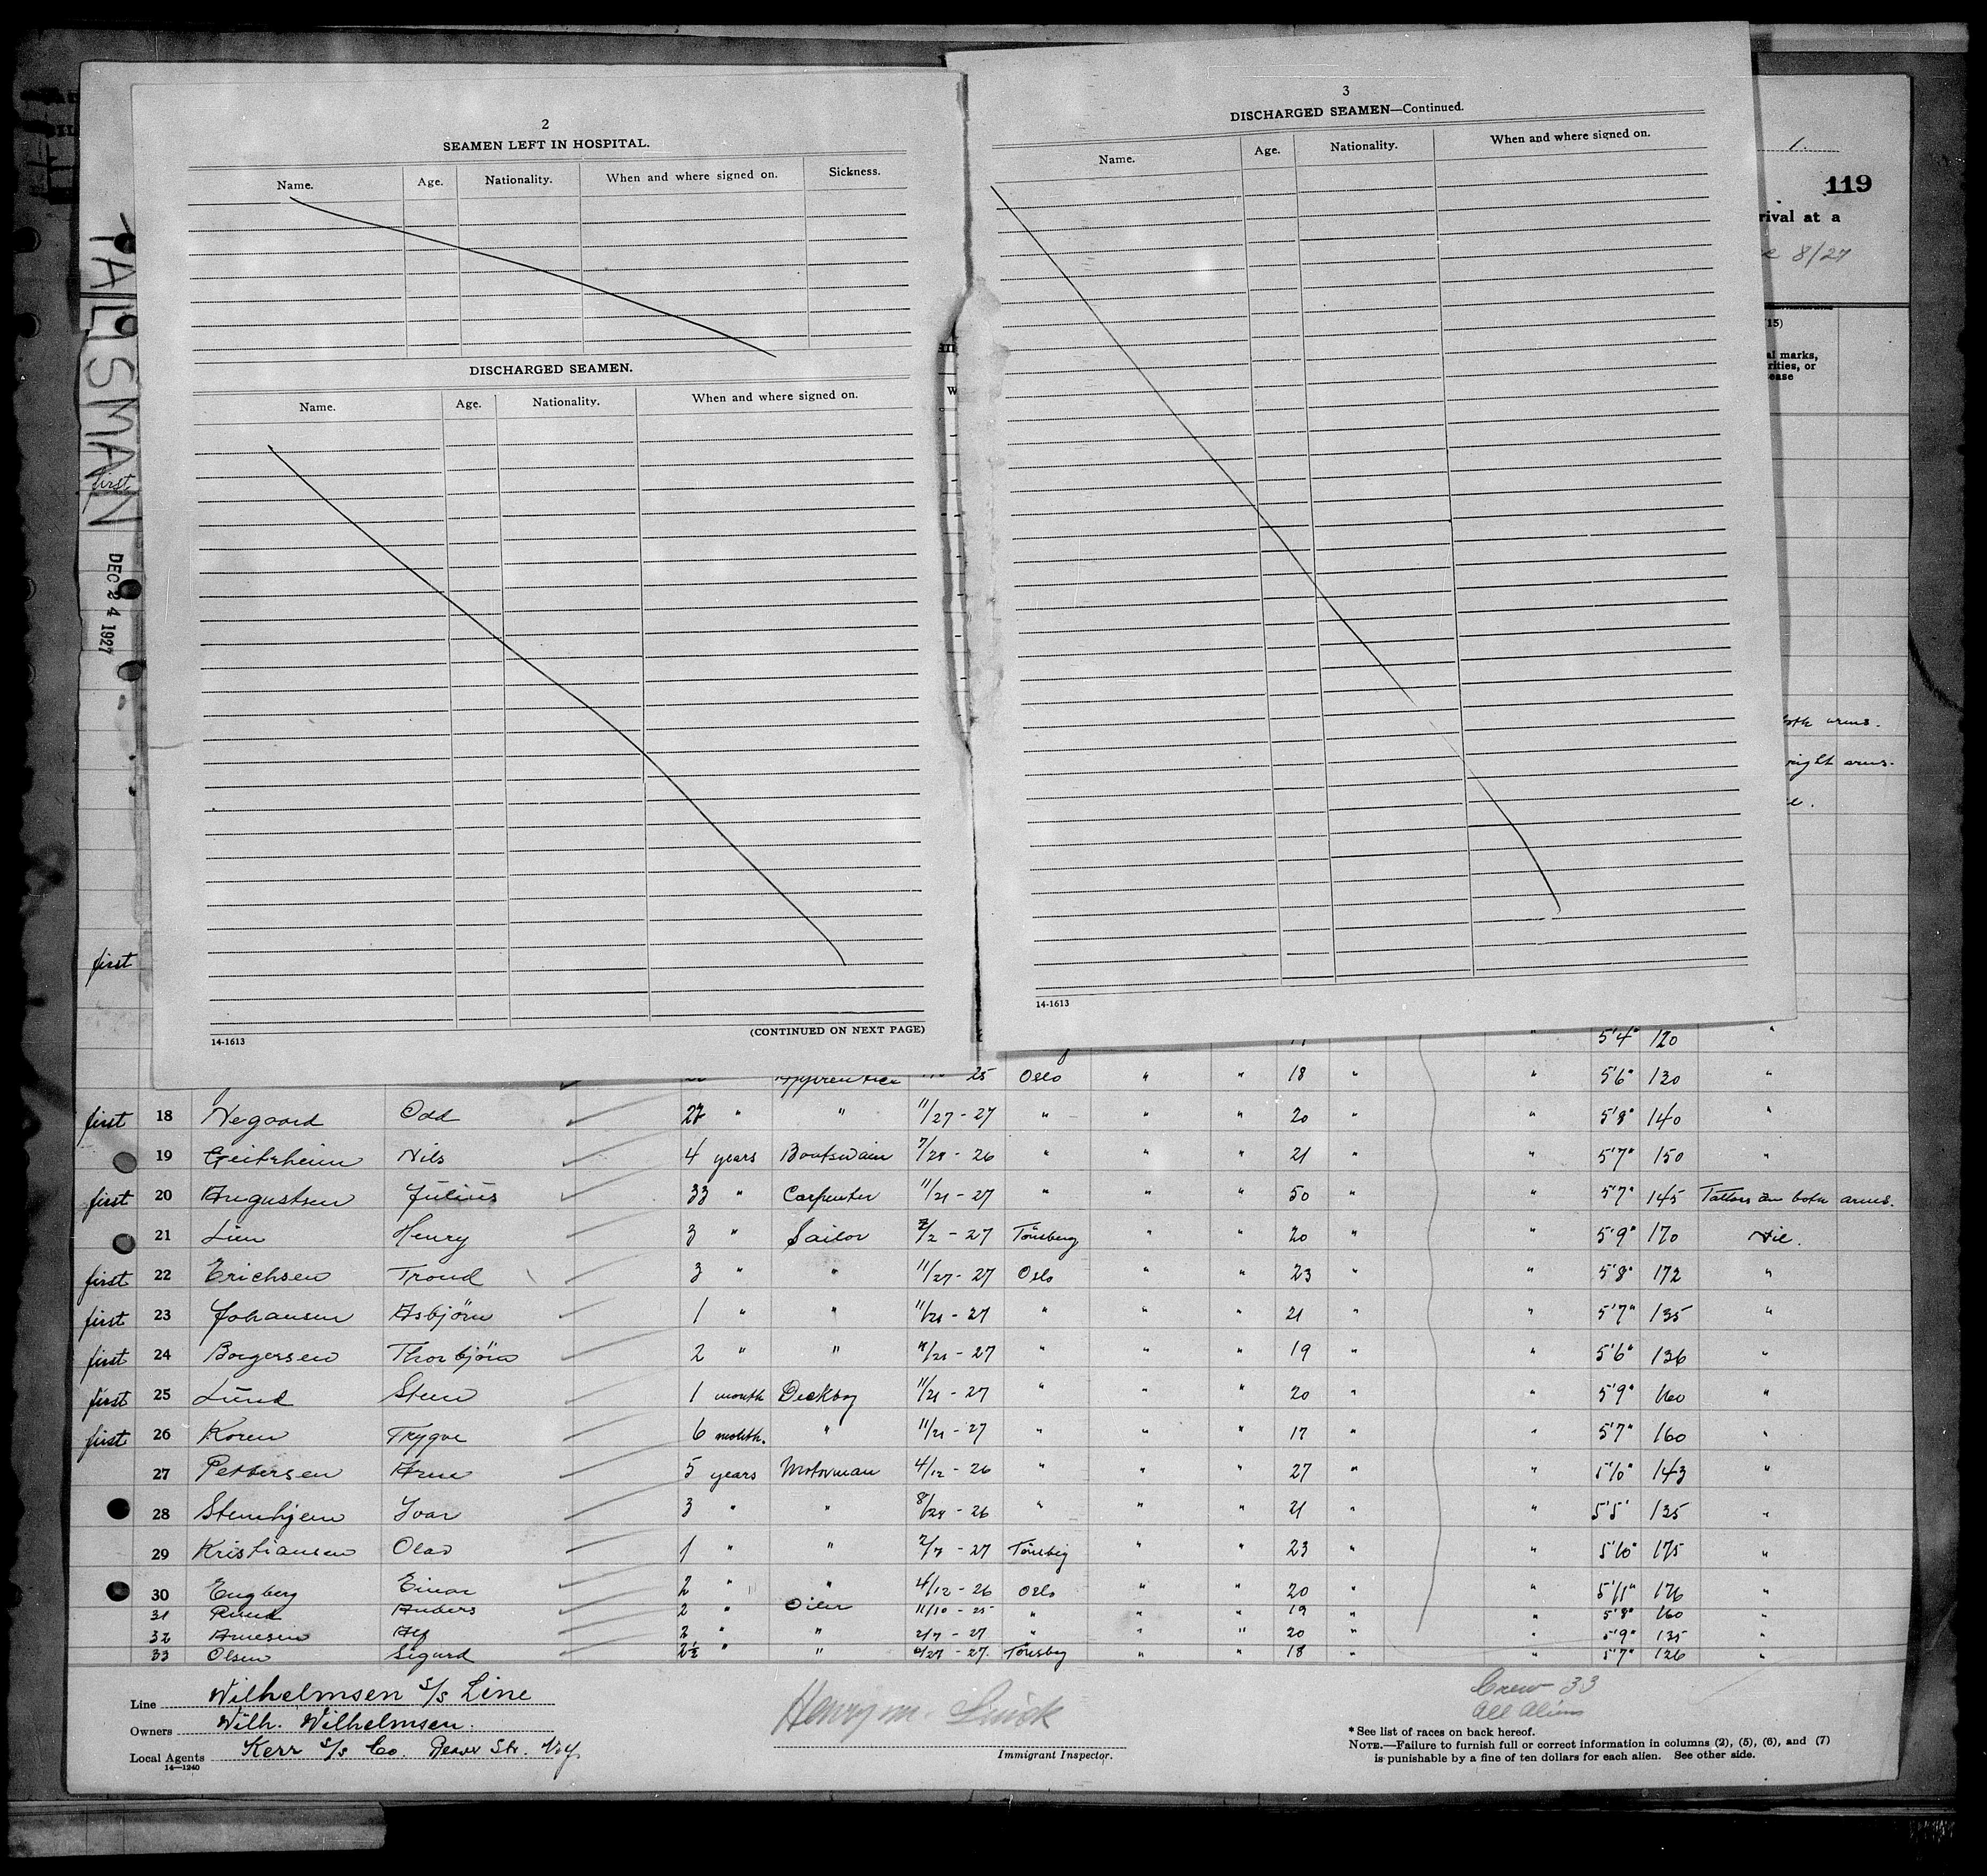 TALSMAN
DEC 24 1927
2
SEAMEN LEFT IN HOSPITAL.
Name. Age. Nationality. When and where signed on. Sickness.
DISCHARGED SEAMEN.
Name. Age. Nationality. When and where signed on.
14-1613
(CONTINUED ON NEXT PAGE)
3
DISCHARGED SEAMEN—Continued.
Name. Age. Nationality. When and where signed on.
14-1613
1
119
rival at a
8/27
(15)
al marks,
rities, or
ease
first
both arms.
right arms.
first
5'4" 120 "
Apprentice 25 Oslo " " 18 " " 5'6" 130 "
first 18 Negaard Odd 27 " " 11/27-27 " " " 20 " " 5'8" 140 "
19 Geitrheim Nils 4 years Boatswain 7/28-26 " " " 21 " " 5'7" 150 "
first 20 Augustsen Julius 33 " Carpenter 11/21-27 " " " 50 " " 5'7" 145 Tattoos on both arms.
21 Lien Henry 3 " Sailor 7/2-27 Tönsberg " " 20 " " 5'9" 170 Nil.
first 22 Erichsen Trond 3 " " 11/27-27 Oslo " " 23 " " 5'8" 172 "
first 23 Johansen Asbjörn 1 " " 11/21-27 " " " 21 " " 5'7" 135 "
first 24 Borgersen Thorbjörn 2 " " 11/21-27 " " " 19 " " 5'6" 136 "
first 25 Lund Steen 1 month Deckboy 11/21-27 " " " 20 " " 5'9" 160 "
first 26 Koren Trygve 6 month. " 11/21-27 " " " 17 " " 5'7" 160 "
27 Pettersen Arne 5 years Motorman 4/12-26 " " " 27 " " 5'10" 143 "
28 Stenhjem Ivar 3 " " 8/28-26 " " " 21 " " 5'5" 135 "
29 Kristiansen Olav 1 " " 2/7-27 Tönsbrg " " 23 " " 5'10" 175 "
30 Engberg Einar 2 " " 4/12-26 Oslo " " 20 " " 5'11" 176 "
31 Ruud Anders 2 " Oiler 11/10-25 " " " 19 " " 5'8" 160 "
32 Arnesen Alf 2 " " 2/7-27 " " " 20 " " 5'9" 135 "
33 Olsen Sigurd 2½ " " 27-27. Tönsbg " " 18 " " 5'7" 126 "
Line Wilhelmsen S/S Line
Owners Wilh. Wilhelmsen.
Local Agents Kerr S/S Co. Beaver Str. N.Y.
14—1240
Henry M.
Immigrant Inspector.
Crew 33
All Aliens
* See list of races on back hereof.
NOTE.—Failure to furnish full or correct information in columns (2), (5), (6), and (7)
is punishable by a fine of ten dollars for each alien. See other side.